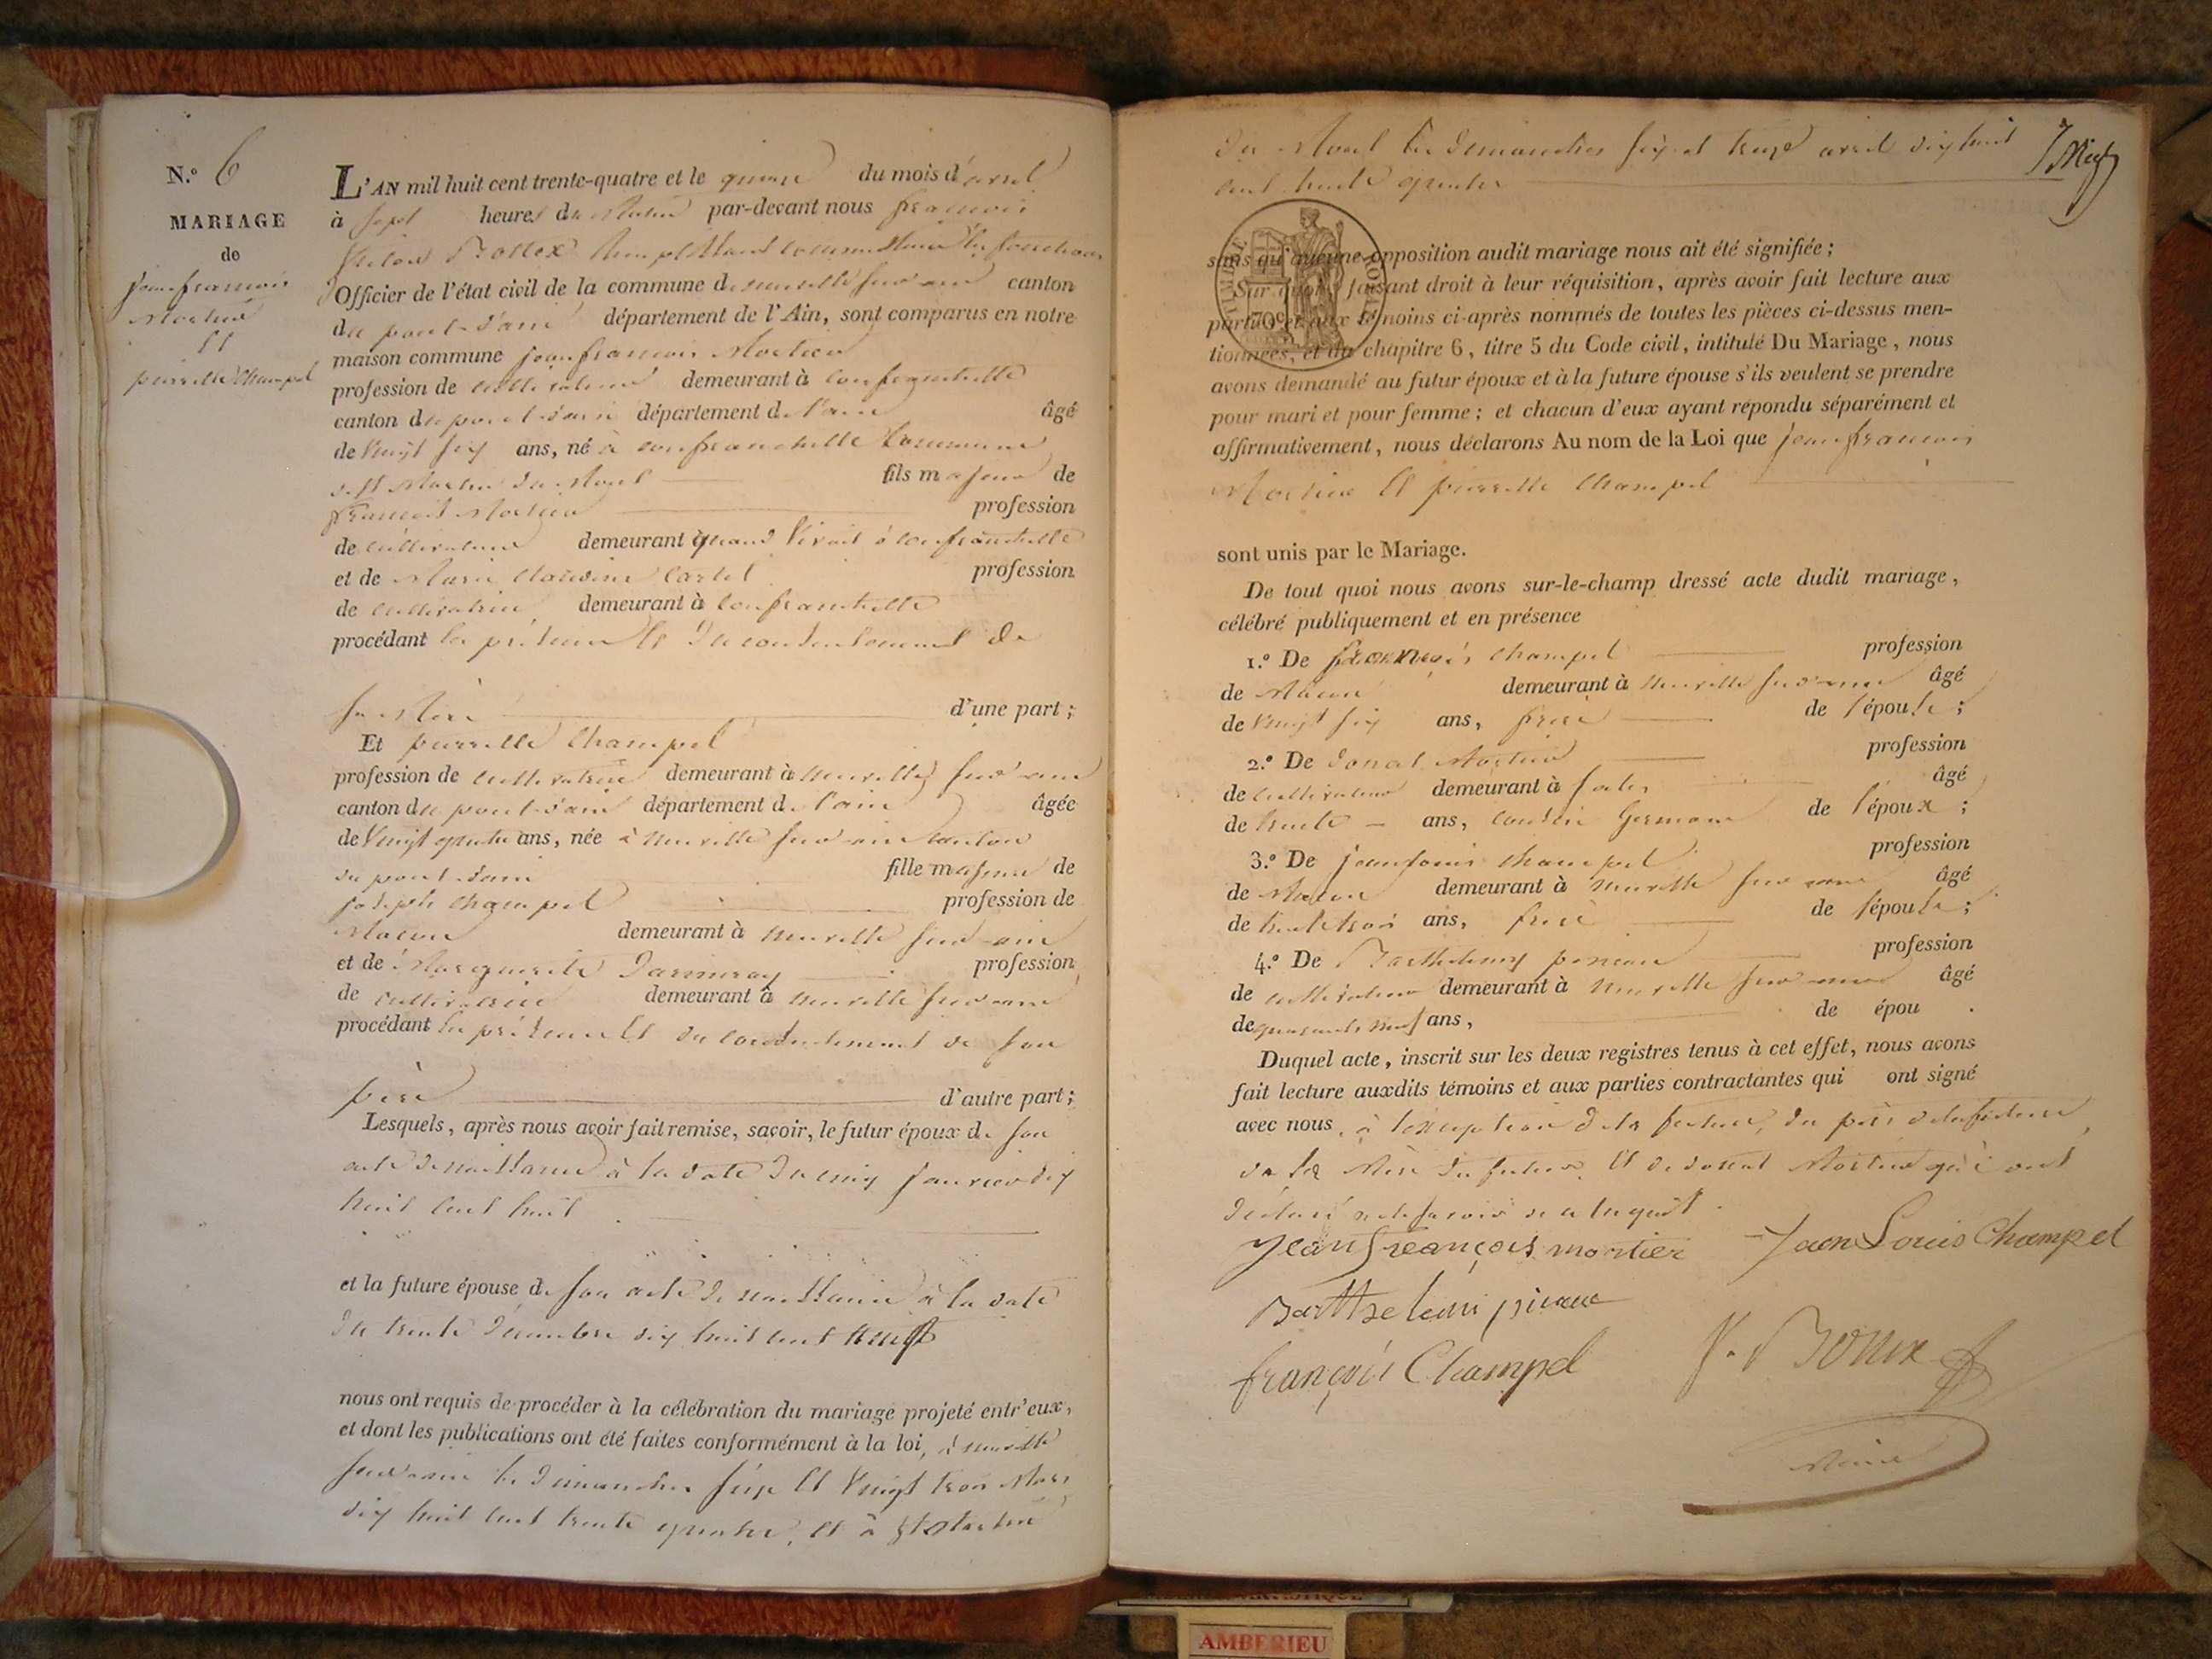 N.º 6
MARIAGE
de
jean françois
Mortier
et
pierrette Champel
L'AN mil huit cent trente-quatre et le quinze du mois d'avril
à sept heures du Matin par-devant nous françois
Bollex remplissant les fonctions
d'Officier de l'état civil de la commune de neuville sur ain canton
du pont-d'ain département de l'Ain, sont comparus en notre
maison commune jean françois Mortier
profession de cultivateur demeurant à confranchette
canton du pont-d'ain département de l'ain âgé
de vingt six ans, né à confranchette Commune
de St Martin du Mont fils majeur de
françois Mortier profession
de cultivateur demeurant quand vivait à confranchette
et de Marie Claudine profession
de cultivatrice demeurant à confranchette
procédant en présence et du consentement de
sa Mère d'une part ;
Et pierrette Champel
profession de cultivatrice demeurant à neuville sur ain
canton du pont-d'ain département de l'ain âgée
de vingt quatre ans, née à neuville sur ain canton
du pont-d'ain fille majeure de
joseph Champel profession de
Maçon demeurant à neuville sur ain
et de Marguerite profession
de cultivatrice demeurant à neuville sur ain
procédant en présence et du consentement de son
père d'autre part ;
Lesquels, après nous avoir fait remise, savoir, le futur époux de son
acte de naissance à la date du cinq janvier dix
huit cent huit
et la future épouse de son acte de naissance à la date
du trente décembre dix huit cent neuf
nous ont requis de procéder à la célébration du mariage projeté entr'eux,
et dont les publications ont été faites conformément à la loi, à neuville
sur ain les dimanches seize et vingt trois Mars
dix huit cent trente quatre, et à St Martin
du Mont les dimanches six et treize avril dix huit
cent trente quatre
sans qu'aucune opposition audit mariage nous ait été signifiée ;
Sur quoi, faisant droit à leur réquisition, après avoir fait lecture aux
parties et aux témoins ci-après nommés de toutes les pièces ci-dessus men-
tionnées, et du chapitre 6, titre 5 du Code civil, intitulé Du Mariage, nous
avons demandé au futur époux et à la future épouse s'ils veulent se prendre
pour mari et pour femme ; et chacun d'eux ayant répondu séparément et
affirmativement, nous déclarons Au nom de la Loi que jean françois
Mortier et pierrette Champel
sont unis par le Mariage.
De tout quoi nous avons sur-le-champ dressé acte dudit mariage,
célébré publiquement et en présence
1.º De françois Champel profession
de Maçon demeurant à neuville sur ain âgé
de vingt six ans, frère de l'épouse ;
2.º De donat Mortier profession
de cultivateur demeurant à âgé
de trente ans, cousin Germain de l'époux ;
3.º De jean louis Champel profession
de Maçon demeurant à neuville sur ain âgé
de trente trois ans, frère de l'épouse ;
4.º De Barthelemy profession
de cultivateur demeurant à neuville sur ain âgé
de quarante neuf ans, de épou .
Duquel acte, inscrit sur les deux registres tenus à cet effet, nous avons
fait lecture auxdits témoins et aux parties contractantes qui ont signé
avec nous, à l'exception de la future, du père de la future,
de la Mère du futur et de donat Mortier qui ont
déclaré ne le savoir de ce requis.
Jean françois mortier
Jaen Louis Champel
françois Champel
Maire
AMBERIEU